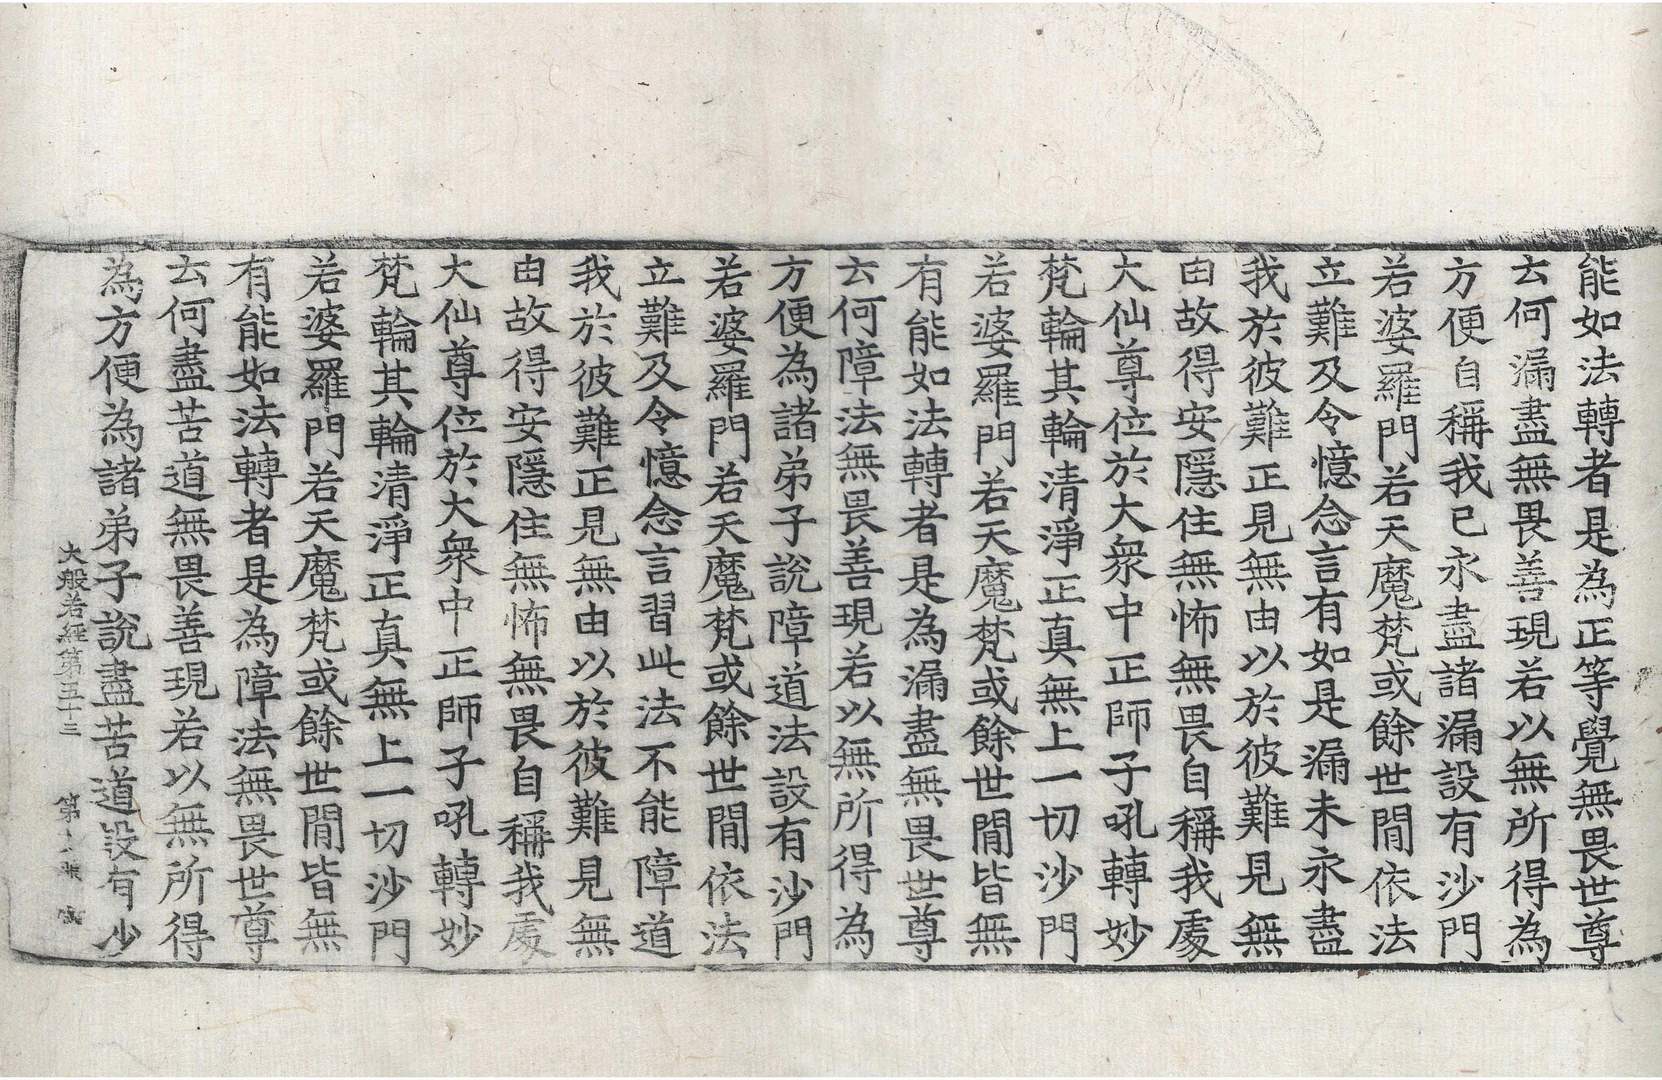 能如法轉者是為正等覺無畏世尊
云何漏盡無畏善現若以無所得為
方便自稱我已永盡諸漏設有沙門
若婆羅門若天魔梵或餘世閒依法
立難及令憶念言有如是漏未永盡
我於彼難正見無由以於彼難見無
由故得安隱住無怖無畏自稱我處
大仙尊位於大衆中正師子吼轉妙
梵輪其輪清淨正真無上一切沙門
若婆羅門若天魔梵或餘世閒皆無
有能如法轉者是為漏盡無畏世尊
云何障法無畏善現若以無所得為
方便為諸弟子說障道法設有沙門
若婆羅門若天魔梵或餘世閒依法
立難及令憶念言習此法不能障道
我於彼難正見無由以於彼難見無
由故得安隱住無怖無畏自稱我處
大仙尊位於大衆中正師子吼轉妙
梵輪其輪清淨正真無上一切沙門
若婆羅門若天魔梵或餘世閒皆無
有能如法轉者是為障法無畏世尊
云何盡苦道無畏善現若以無所得
為方便為諸弟子說盡苦道設有沙
大般若經第五十三 第 張